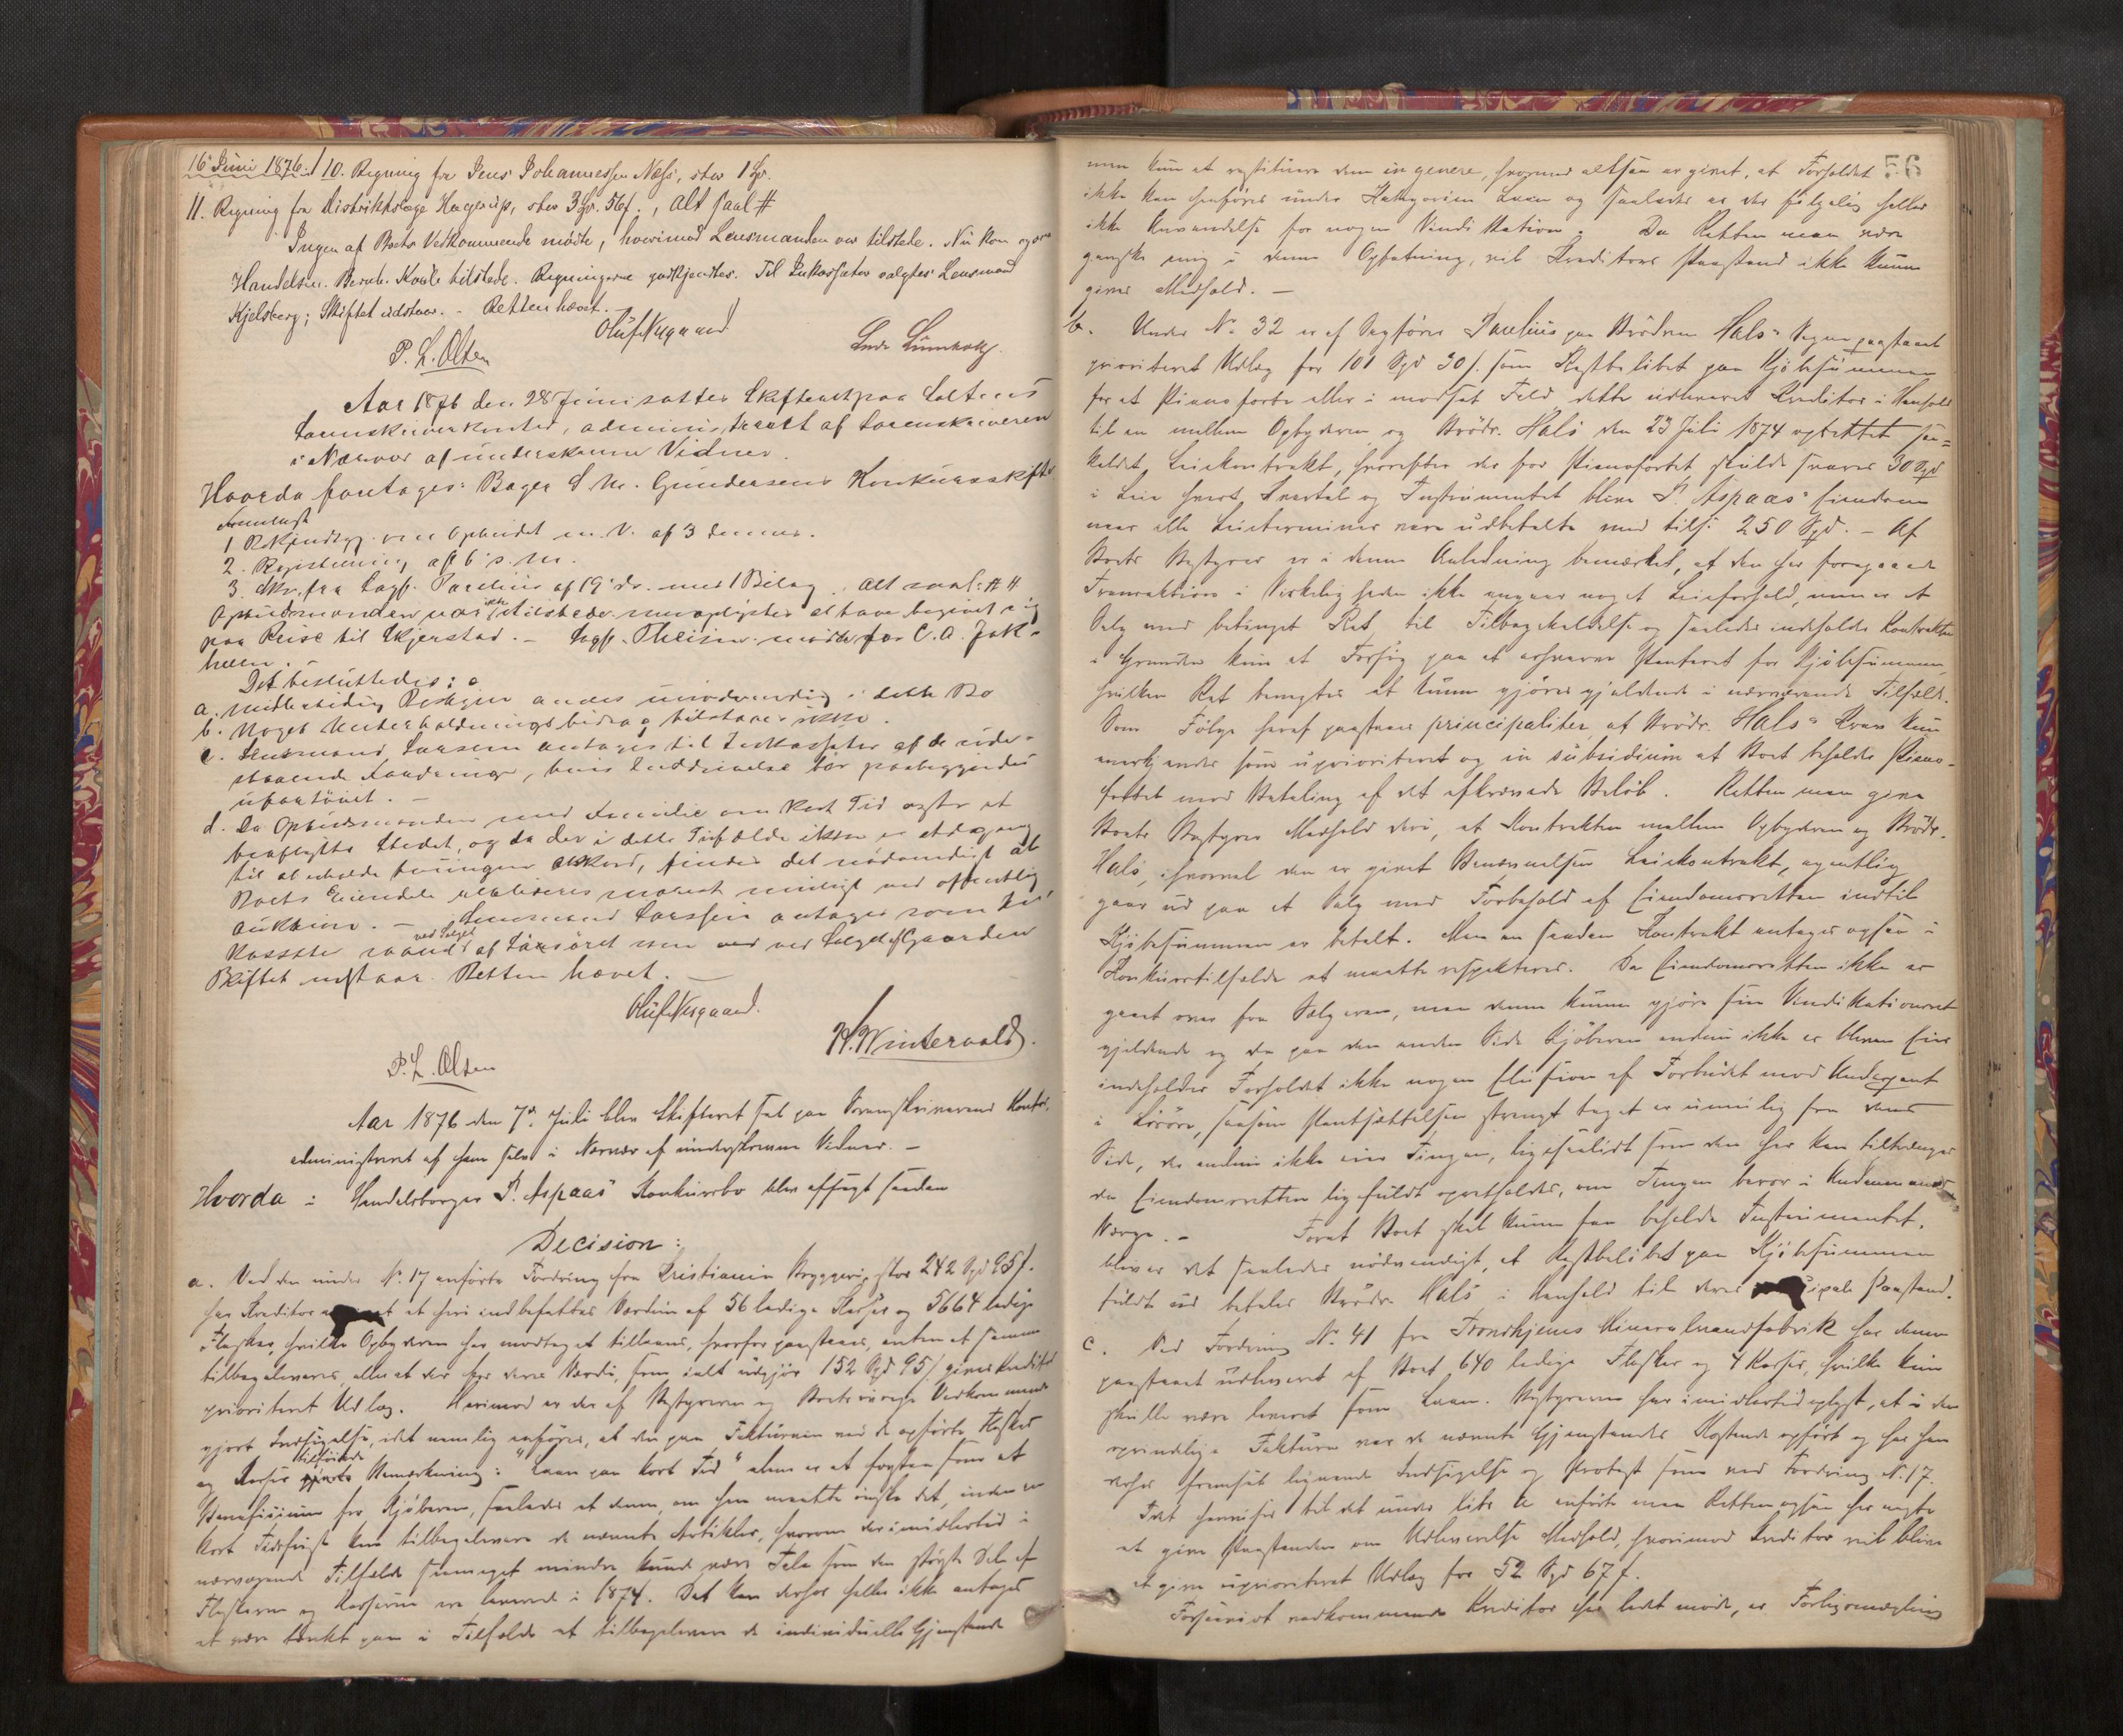 16 Juni 1876./ 10. Regning fra Jens Johannessen Næss, stor 1 Spd.
11. Regning fra Distriktslæge Hagerup, stor 3 Spd. 56 s., Alt saal. #
Ingen af Boets Vedkommende mødte, hvorimod Lensmanden var tilstede. Nu kom ogsaa
Handelsm. Bernh. Koch tilstede. Regningerne godkjendtes. Til Inkassator valgtes Lensmand
Kjelsberg; Skiftet udstaar. - Retten hævet.
P. L. Olsen
Aar 1876 den 28 Juni sattes Skifteret paa Saltens
Sorenskriverkontor, administreret af Sorenskriveren
i Nærvær af underskrevne Vidner.
Hvorda foretages: Bager S M. Gundersens Konkursskifte
Fremlagt
1 Bekjendtgj. om Opbudet m. V. af 3 dennes.
2. Registrering af 6 s. m.
3. Skr. fra Sagf. Parelius af 19 ds. med 1 Bilag. Alt saal: # #
Opbudsmanden var ikke tilstede men oplystes at have begivet sig
paa Reise til Skjerstad. - Sagf. Theisen mødte for C. A. Jak-
helln.
Det besluttedes:
a. Midlertidig Bestyrer ansees unødvendig i dette Bo
b. Noget Underholdningsbidrag tilstaaes ikke.
c. Lensmand Larssen antages til Inkassator af de ude-
staaende Fordringer, hvis Inddrivelse bør paabegyndes
ufortøvet. -
d. Da Opbudsmanden med Familie om kort Tid agter at
fraflytte Stedet, og da der i dette Tilfælde ikke er Adgang
til at erholde tvungen Akkord, findes det nødvendigt at
Boets Eiendele realiseres snarest muligt ved offentlig
Auktion. - Lensmand Larssen antages som In-
kassator saavel ved Salget af Løsøret som ved Salget af Gaarden
Skiftet udstaar. Retten hævet. -
P. L. Olsen
H. Wintervold.
Aar 1876 den 7de Juli blev Skifteret sat paa Sorenskriverens Kontor,
administreret af ham selv i Nærvær af underskrevne Vidner. -
Hvorda: Handelsborger P. Aspaas' Konkursbo blev afsagt saadan
Decision:
a. Ved den under No. 17 anførte Fordring fra Kristiania Bryggeri, stor 242 Spd 95 s.
har Kreditor at heri indbefattes Værdien af 56 ledige Kasser og 5664 ledige
Flasker, hvilke Opbyderen har modtaget tillaans, hvorfor paastaaes, enten at samme
tilbageleveres eller at der for deres Værdi, som ialt udgjør 152 Spd 95 s. gives Kreditor
prioriteret Udlæg. Herimod er der af Bestyreren og Boets øvrige Vedkommende
gjort Indsigelse, idet nemlig anføres, at den paa Fakturaen ved de opførte Flasker
og Kasser tilføiede Bemærkning: "Laan paa kort Tid" alene er at forstaa som et
Beneficium for Kjøberen, saaledes at denne, om han maatte ønske det, inden en
kort Tidsfrist kan tilbagelevere de nævnte Artikler, hvorom der imidlertid i
nærværende Tilfælde saameget mindre kunde være Tale som den største Del af
Flaskerne og Kasserne ere leverede i 1874. Det kan derfor heller ikke antages
at være tænkt paa i Tilfælde at tilbagelevere de individuelle Gjenstande
56
men kun at restituere dem in genere, hvormed altsaa er givet, at Forholdet
ikke kan henføres under Kategorien Laan og saaledes er der følgelig heller
ikke Anvendelse for nogen Vindikation. Da Retten maa være
ganske enig i denne Opfatning, vil Kreditors Paastand ikke kunne
gives Medhold. -
b. Under No. 32 er af Sagfører Parelius paa Brødrene Hals' Vegne paastaaet
prioriteret Udlæg for 101 Spd 30 s. som Restbeløbet paa Kjøbesummen
for et Pianoforte eller i modsat Fald dette udleveret Kreditor i Henhold
til en mellem Opbyderen og Brødr. Hals den 23 Juli 1874 oprettet saa-
kaldet Leiekontrakt, hvorefter der for Pianofortet skulde svares 30 Spd
i Leie hvert Kvartal og Instrumentet blive P. Aspaas' Eiendom
naar alle Leieterminer vare udbetalte med tils. 250 Spd. - Af
Boets Bestyrer er i denne Anledning bemærket, at den her foregaaede
Transaktion i Virkeligheden ikke angaar noget Leieforhold, men er et
Salg med betinget Ret til Tilbagekaldelse og saaledes indeholder Kontrakten
i Grunden kun et Forsøg paa at erhverve Panteret for Kjøbesummen,
hvilken Ret benegtes at kunne gjøres gjældende i nærværende Tilfælde.
Som Følge heraf paastaaes principaliter, at Brødr. Hals' Krav kun
anerkjendes som uprioriteret og in subsidium at Boet beholder Piano-
fortet mod Betaling af det afkrævede Beløb. Retten maa give
Boets Bestyrer Medhold deri, at Kontrakten mellem Opbyderen og Brødr.
Hals, ihvorvel den er givet Benævnelsen Leiekontrakt, egentlig
gaar ud paa et Salg med Forbehold af Eiendomsretten indtil
Kjøbesummen er betalt. Men en saadan Kontrakt antages ogsaa i
Konkurstilfælde at maatte respekteres. Da Eiendomsretten ikke er
gaaet over fra Sælgeren, maa denne kunne gjøre sin Vindikationsret
gjeldende og da paa den anden Side Kjøberen endnu ikke er bleven Eier
indeholder Forholdet ikke nogen Elusion af Forbudet mod Underpant
i Løsøre, saasom Pantsættelsen strengt taget er umulig fra dens
Side, der endnu ikke eier Tingen, ligesaalidt som den her kan tiltrænges
da Eiendomsretten ligefuldt opretholdes, om Tingen beror i Andenmands
Værge. - Foråt Boet skal kunne faa beholde Instrumentet,
bliver det saaledes nødvendigt, at Restbeløbet paa Kjøbesummen
fuldt ud betales Brødr. Hals i Henhold til deres Paastand.
c. Ved Fordring No. 41 fra Trondhjems Mineralvandfabrik har denne
paastaaet udleveret af Boet 640 ledige Flasker og 4 Kasser, hvilke kun
skulle være leveret som Laan. Bestyreren har imidlertid oplyst, at i den
oprindelige Faktura var de nævnte Gjenstandes Kostende opført og har han
derfor fremsat lignende Indsigelse og Protest som ved Fordring No. 17.
Idet henvises til det under litr. a anførte maa Retten ogsaa her negte
at give Paastanden om Udleverelse Medhold, hvorimod Kreditor vil blive
at give uprioriteret Udlæg for 52 Spd 67 s.
Forsaavidt vedkommende Kreditor har ladet møde, er Forligsmægling